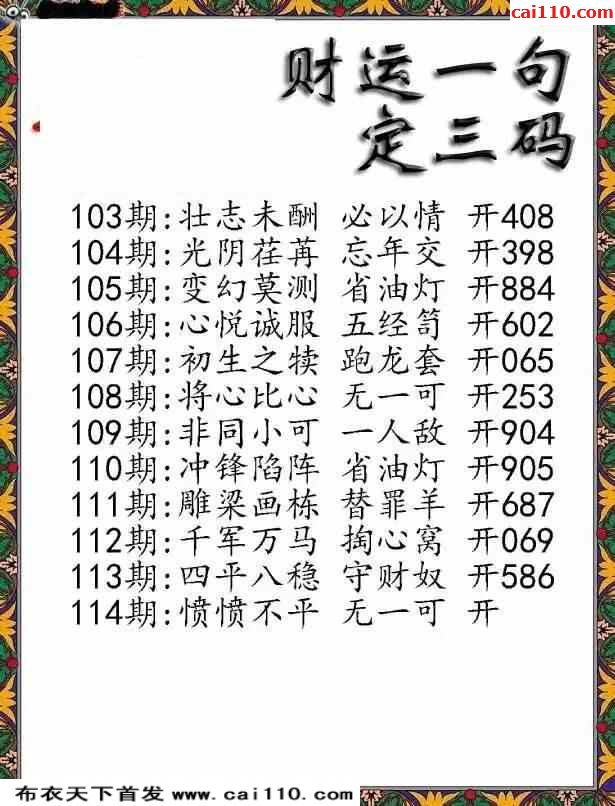 cai110.com
财运一句
定三码
103期:壮志未酬 必以情 开408
104期:光阴荏苒 忘年交 开398
105期:变幻莫测 省油灯 开884
106期:心悦诚服 五经笥 开602
107期:初生之犊 跑龙套 开065
108期:将心比心 无一可 开253
109期:非同小可 一人敌 开904
110期:冲锋陷阵 省油灯 开905
111期:雕梁画栋 替罪羊 开687
112期:千军万马 掏心窝 开069
113期:四平八稳 守财奴 开586
114期:愤愤不平 无一可 开
布衣天下首发 www.cai110.com